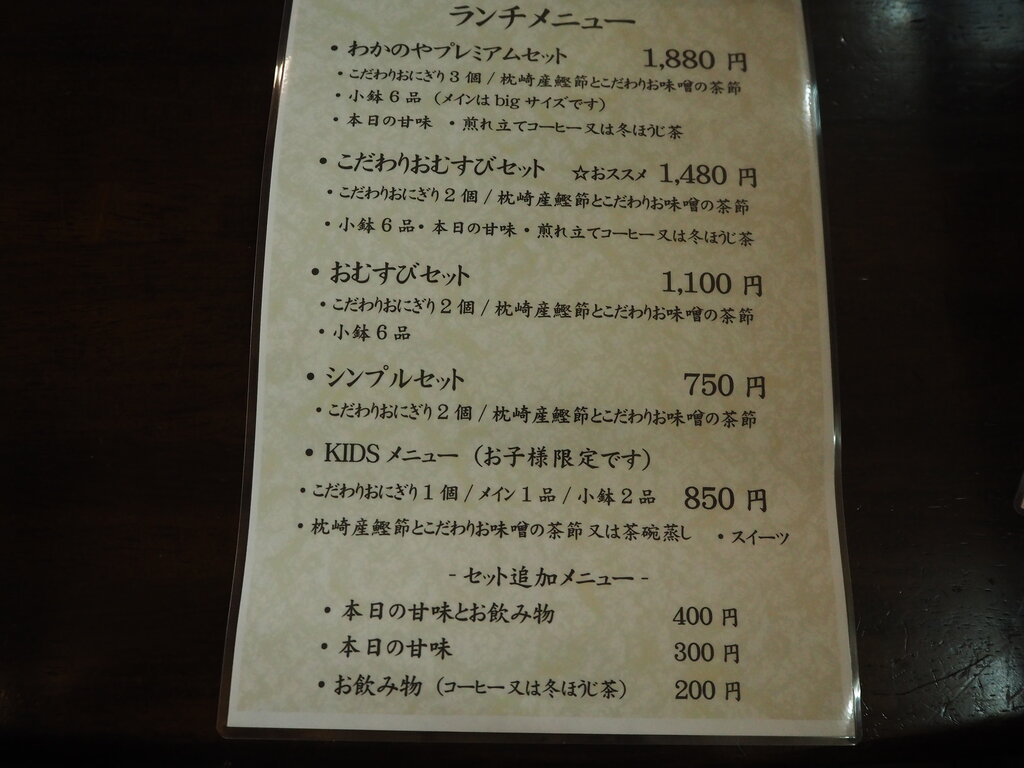 ランチメニュー
・わかのやプレミアムセット 1,880 円
・こだわりおにぎり 3 個 / 枕崎産鰹節とこだわりお味噌の茶節
・小鉢 6 品（メインは big サイズです）
・本日の甘味 ・煎れ立てコーヒー又は冬ほうじ茶
・こだわりおむすびセット ☆おススメ 1,480 円
・こだわりおにぎり 2 個 / 枕崎産鰹節とこだわりお味噌の茶節
・小鉢 6 品・本日の甘味・煎れ立てコーヒー又は冬ほうじ茶
・おむすびセット 1,100 円
・こだわりおにぎり 2 個 / 枕崎産鰹節とこだわりお味噌の茶節
・小鉢 6 品
・シンプルセット 750 円
・こだわりおにぎり 2 個 / 枕崎産鰹節とこだわりお味噌の茶節
・KIDS メニュー（お子様限定です）
・こだわりおにぎり 1 個 / メイン 1 品 / 小鉢 2 品 850 円
・枕崎産鰹節とこだわりお味噌の茶節又は茶碗蒸し ・スイーツ
- セット追加メニュー -
・本日の甘味とお飲み物 400 円
・本日の甘味 300 円
・お飲み物（コーヒー又は冬ほうじ茶） 200 円